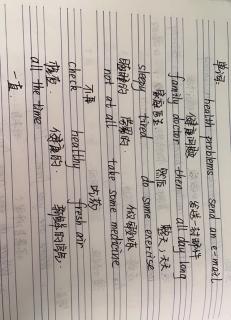 单词: health problems send an e-mail
健康问题 发送一封邮件
family doctor then all day long
家庭医生 然后 整天、天天
sleepy tired do some exercise
瞌睡的 疲累的 做锻炼
not at all take some medicine
不再 吃药
check healthy fresh air
检查 健康的 新鲜的空气
all the time
一直